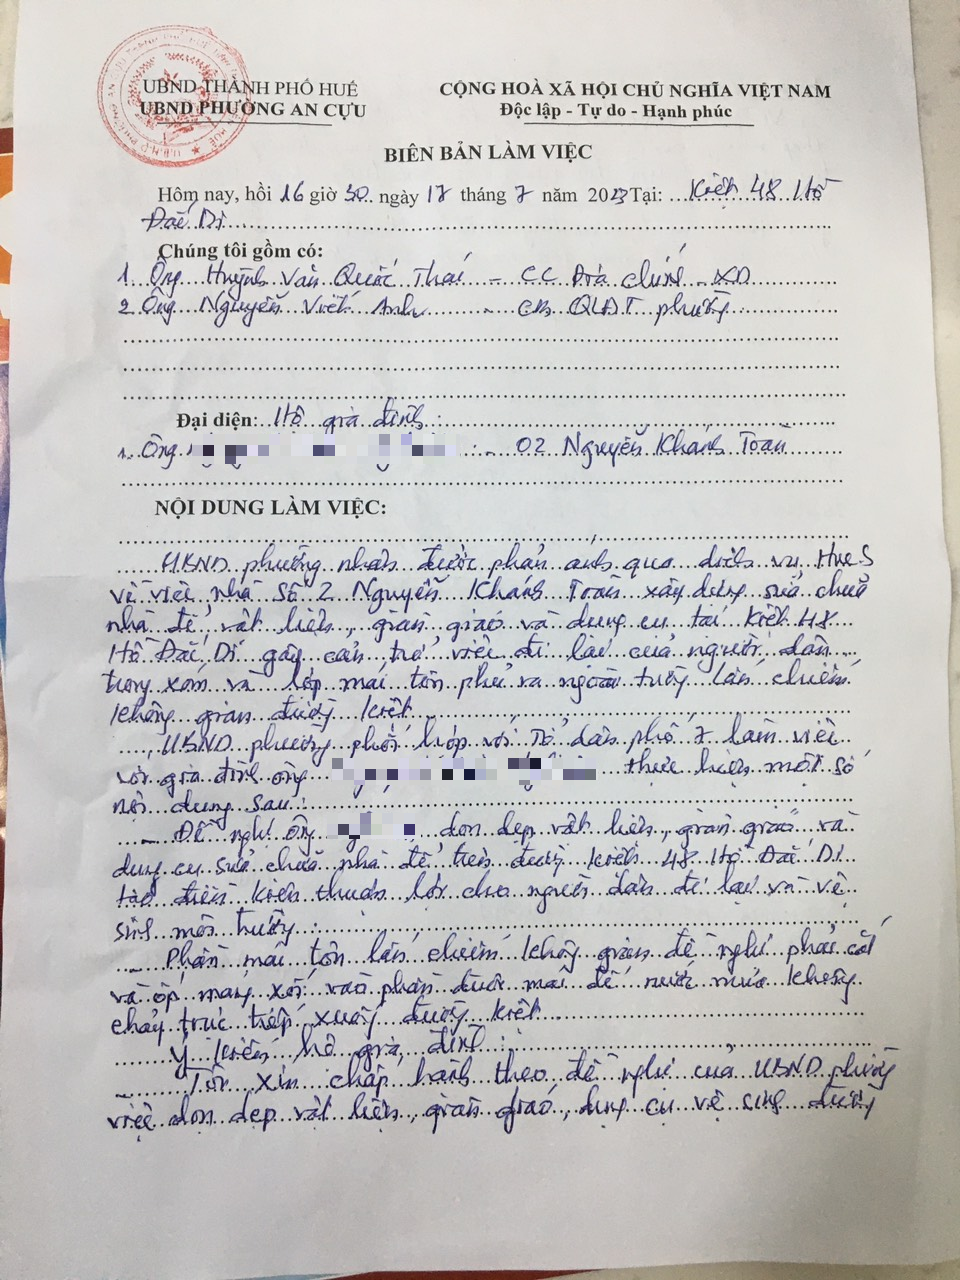 UBND THÀNH PHỐ HUẾ
UBND PHƯỜNG AN CỰU
CỘNG HOÀ XÃ HỘI CHỦ NGHĨA VIỆT NAM
Độc lập - Tự do - Hạnh phúc
BIÊN BẢN LÀM VIỆC
Hôm nay, hồi 16 giờ 30 ngày 17 tháng 7 năm 2023 Tại: Kiệt 48 Hồ
Đắc Di
Chúng tôi gồm có:
1. Ông Huỳnh Văn Quốc Thái - CC Địa chính XD
2. Ông Nguyễn Viết Anh - CB QLĐT phường
Đại diện: Hộ gia đình:
1. Ông : 02 Nguyễn Khánh Toàn
NỘI DUNG LÀM VIỆC:
UBND phường nhận được phản ánh qua dịch vụ HueS
về việc nhà số 2 Nguyễn Khánh Toàn xây dựng sửa chữa
nhà để vật liệu, giàn giáo và dụng cụ tại kiệt 48
Hồ Đắc Di gây cản trở việc đi lại của người dân
trong xóm và lợp mái tôn phủ ra ngoài tường lấn chiếm
không gian đường kiệt
UBND phường phối hợp với Tổ dân phố 7 làm việc
với gia đình ông thực hiện một số
nội dung sau:
- Đề nghị ông dọn dẹp vật liệu, giàn giáo và
dụng cụ sửa chữa nhà để trên đường kiệt 48 Hồ Đắc Di
tạo điều kiện thuận lợi cho người dân đi lại và vệ
sinh môi trường
- Phần mái tôn lấn chiếm không gian đề nghị phải cắt
và ốp máng xối vào phần đuôi mái để nước mưa không
chảy trực tiếp xuống đường kiệt
Ý kiến hộ gia đình:
- Tôi xin chấp hành theo đề nghị của UBND phường
việc dọn dẹp vật liệu, giàn giáo, dụng cụ vệ sinh đường